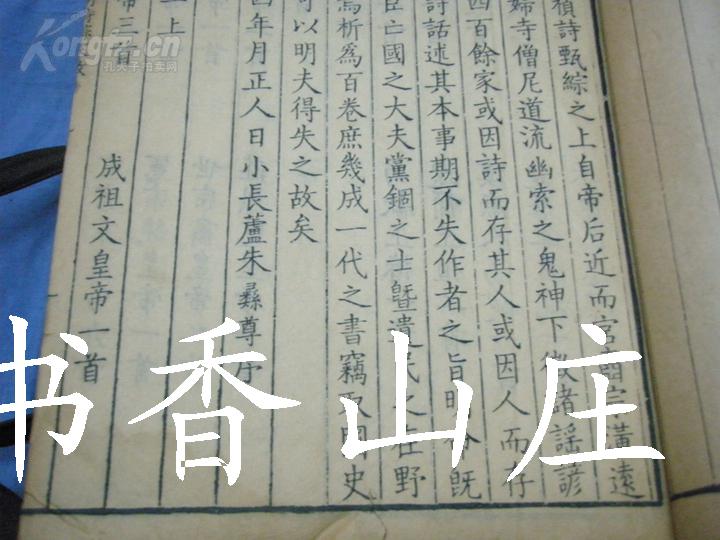 積詩甄綜之上自帝后近而宮壼宗潢遠
婦寺僧尼道流幽索之鬼神下徵諸謡諺
四百餘家或因詩而存其人或因人而存
詩話述其本事期不失作者之旨明命既
臣亡國之大夫黨錮之士曁遺民之在野
焉析為百卷庶幾成一代之書竊取國史
可以明夫得失之故矣
四年月正人日小長蘆朱彞尊序
上
帝三首
成祖文皇帝一首
书香山庄